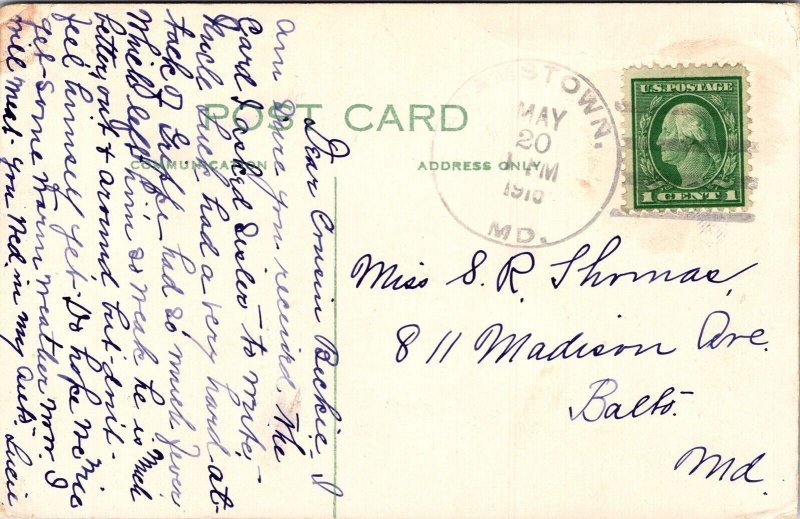 POST CARD
COMMUNICATION
ADDRESS ONLY
MSTOWN.
MAY
20
PM
1916
MD.
U.S. POSTAGE
1 CENT 1
Miss S. R. Thomas,
811 Madison Ave.
Balto.
Md.
Dear Cousin Beckie, I
am sure you received the
Card I asked Sister to write.
Uncle had a very hard at-
tack of Grippe had so much fever
Which left him so weak he is much
better, out & around but don't
feel himself yet. Do hope we
get some warm weather now. I
will meet you Wed. in my auto. Lucie